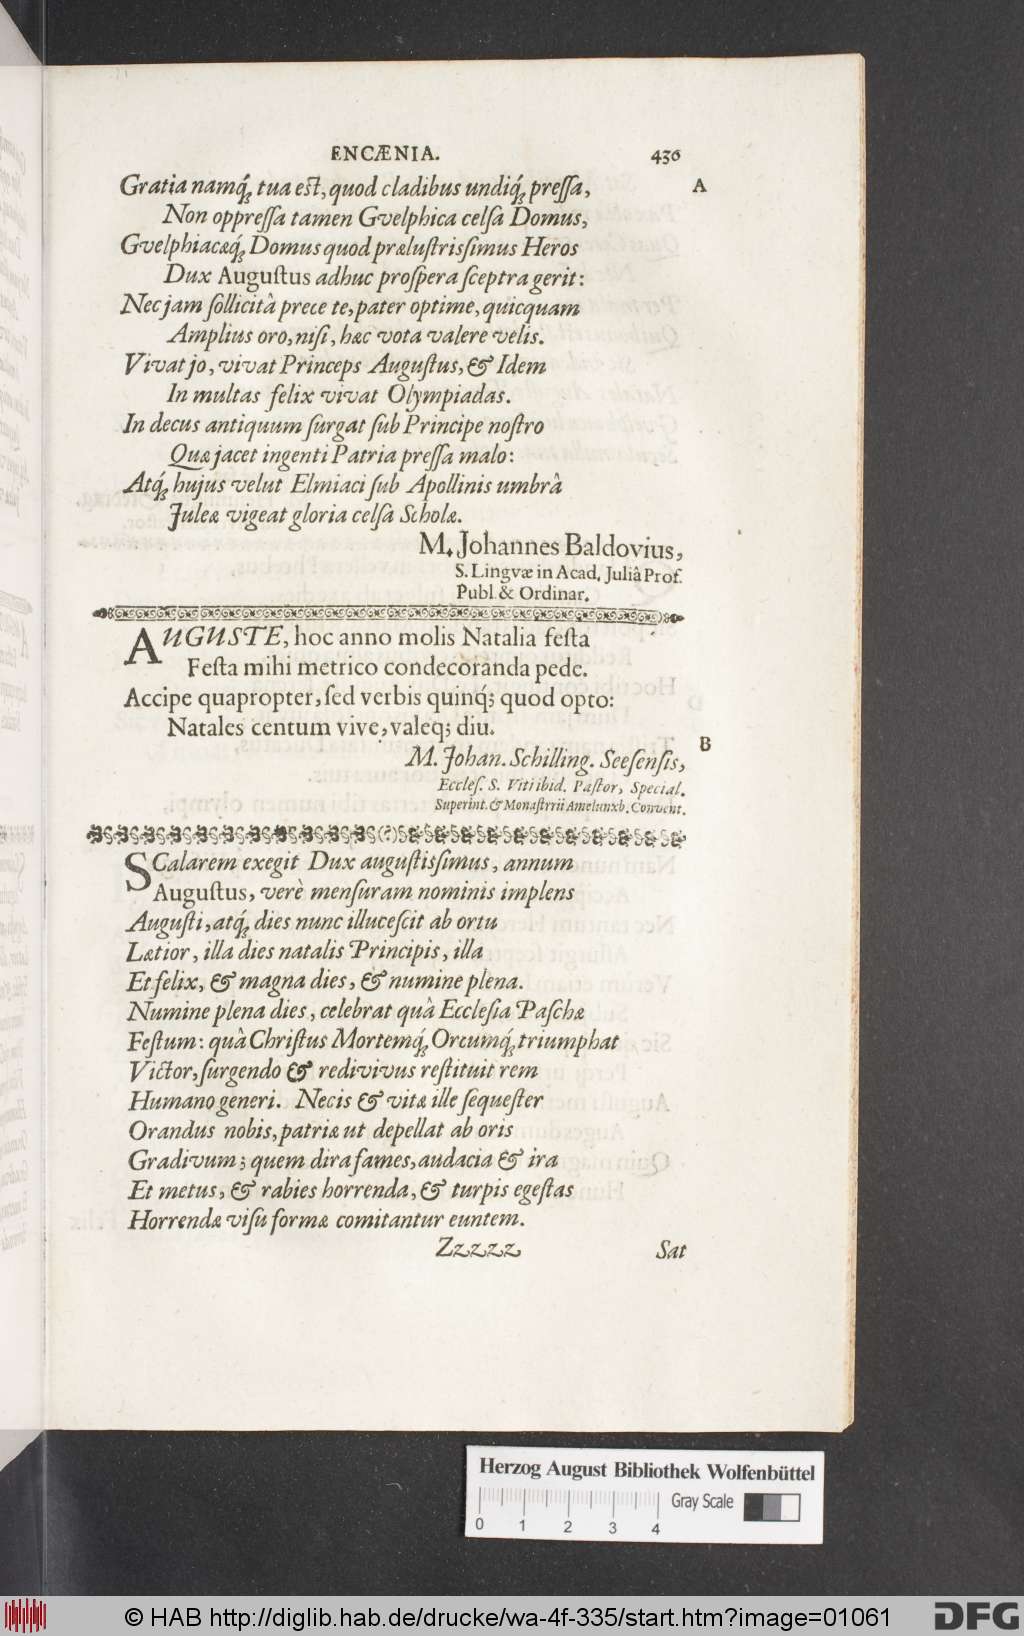 ENCÆNIA. 436
Gratia namq́ꝫ tua est, quod cladibus undiq́ꝫ preſſa, A
Non oppreſſa tamen Gvelphica celſa Domus,
Gvelphiacæq́ꝫ Domus quod præluſtriſſimus Heros
Dux Auguſtus adhuc proſpera ſceptra gerit:
Nec jam ſollicitâ prece te, pater optime, quicquam
Amplius oro, niſi, hæc vota valere velis.
Vivat jo, vivat Princeps Auguſtus, & Idem
In multas felix vivat Olympiadas.
In decus antiquum ſurgat ſub Principe noſtro
Quæ jacet ingenti Patria preſſa malo:
Atq́ꝫ hujus velut Elmiaci ſub Apollinis umbrâ
Juleæ vigeat gloria celſa Scholæ.
M. Johannes Baldovius,
S. Lingvæ in Acad. Juliâ Prof.
Publ. & Ordinar.
AUGUSTE, hoc anno molis Natalia feſta
Feſta mihi metrico condecoranda pede.
Accipe quapropter, ſed verbis quinq́ꝫ quod opto:
Natales centum vive, valeqꝫ diu.
B
M. Johan. Schilling. Seeſenſis,
Eccleſ. S. Viti ibid. Paſtor, Special.
Superint. & Monaſtrii Amelunxb. Convent.
SCalarem exegit Dux auguſtiſſimus, annum
Auguſtus, verè menſuram nominis implens
Auguſti, atq́ꝫ dies nunc illuceſcit ab ortu
Lætior, illa dies natalis Principis, illa
Et felix, & magna dies, & numine plena.
Numine plena dies, celebrat quâ Eccleſia Paſchæ
Feſtum: quâ Chriſtus Mortemq́ꝫ Orcumq́ꝫ triumphat
Victor, ſurgendo & redivivus reſtituit rem
Humano generi. Necis & vitæ ille ſequeſter
Orandus nobis, patriæ ut depellat ab oris
Gradivum; quem dira fames, audacia & ira
Et metus, & rabies horrenda, & turpis egeſtas
Horrendæ viſu formæ comitantur euntem.
Zzzzzz Sat
Herzog August Bibliothek Wolfenbüttel
Gray Scale
0 1 2 3 4
© HAB http://diglib.hab.de/drucke/wa-4f-335/start.htm?image=01061 DFG